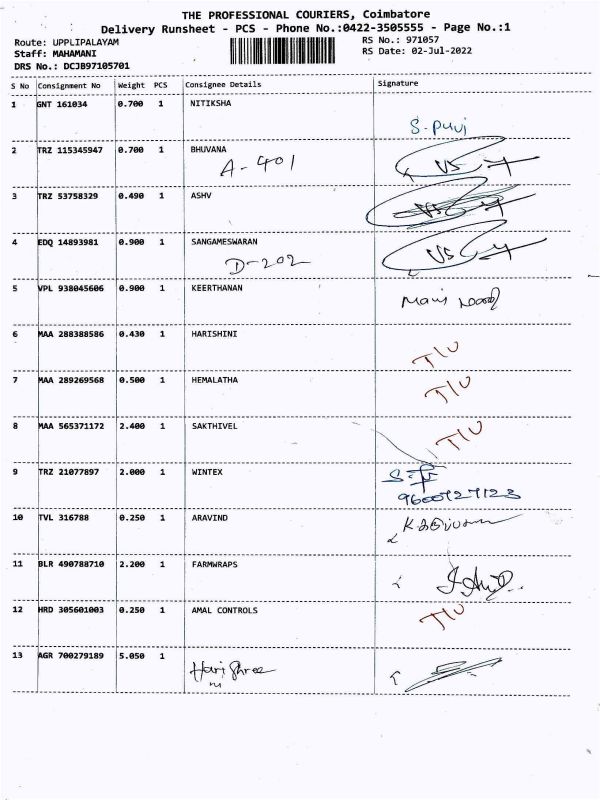 THE PROFESSIONAL COURIERS, Coimbatore
Delivery Runsheet - PCS - Phone No.:0422-3505555 - Page No.:1
Route: UPPLIPALAYAM RS No.: 971057
Staff: MAHAMANI RS Date: 02-Jul-2022
DRS No.: DCJB97105701
S No Consignment No Weight PCS Consignee Details Signature
1 GNT 161034 0.700 1 NITIKSHA
S-Puvi
2 TRZ 115345947 0.700 1 BHUVANA
A-401
3 TRZ 53758329 0.490 1 ASHV
4 EDQ 14893981 0.900 1 SANGAMESWARAN
D-202
5 VPL 938045606 0.900 1 KEERTHANAN
6 MAA 288388586 0.430 1 HARISHINI
T/U
7 MAA 289269568 0.500 1 HEMALATHA
T/U
8 MAA 565371172 2.400 1 SAKTHIVEL
T/U
9 TRZ 21077897 2.000 1 WINTEX
9600727123
10 TVL 316788 0.250 1 ARAVIND
11 BLR 490788710 2.200 1 FARMWRAPS
12 HRD 305601003 0.250 1 AMAL CONTROLS
T/U
13 AGR 700279189 5.050 1
Harishree